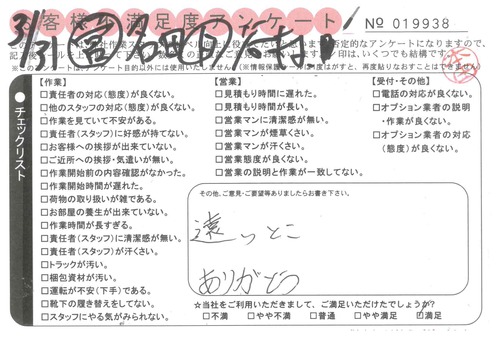 お客様満足度アンケート
№ 019938
3/31
【作業】
□責任者の対応(態度)が良くない。
□他のスタッフの対応(態度)が良くない。
□作業を見ていて不安がある。
□責任者(スタッフ)に好感が持てない。
□お客様への挨拶が出来ていない。
□ご近所への挨拶・気遣いが無い。
□作業開始前の内容確認がなかった。
□作業開始時間が遅れた。
□荷物の取り扱いが雑である。
□お部屋の養生が出来ていない。
□作業時間が長すぎる。
□責任者(スタッフ)に清潔感が無い。
□責任者(スタッフ)が汗くさい。
□トラックが汚い。
□梱包資材が汚い。
□運転が不安(下手)である。
□靴下の履き替えをしてない。
□スタッフにやる気がみられない。
チェックリスト
【営業】
□見積もり時間に遅れた。
□見積もり時間が長い。
□営業マンに清潔感が無い。
□営業マンが煙草くさい。
□営業マンが汗くさい。
□営業態度が良くない。
□営業の説明と作業が一致してない。
【受付・その他】
□電話の対応が良くない。
□オプション業者の説明
・作業が良くない。
□オプション業者の対応
(態度)が良くない。
その他、ご意見・ご要望等ありましたらお書き下さい。
遠っとこ
ありがとう
☆当社をご利用いただきまして、ご満足いただけたでしょうか?
□不満 □やや不満 □普通 □やや満足 ☑満足